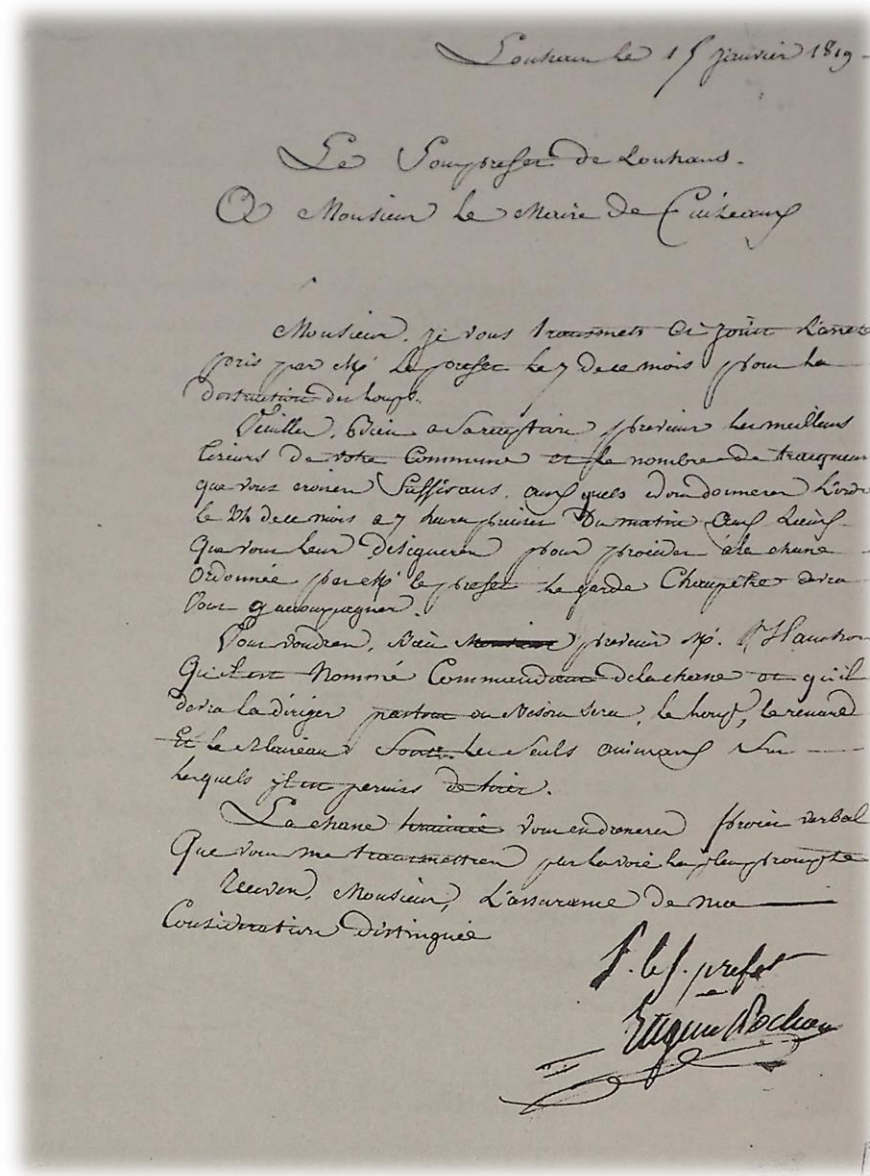 Louhans le 15 janvier 1819
Le Souprefet de Louhans.
A Monsieur le Maire de Cuiseaux
Monsieur, je vous transmets Ci joint L'arrêté
pris par Mr Le prefet le 7 de ce mois pour la
destruction des loups.
Veuillez, Bien a Sa reception prevenir les meilleurs
tireurs de votre Commune et le nombre de traqueurs
que vous croirez Suffisans, auxquels vous donnerez L'ordre
le 24 de ce mois a 7 heures precises du matin aux Lieux
Que vous leur designerez pour proceder à la chasse
Ordonnée par Mr le prefet le garde Champêtre devra
Vous y accompagner.
Vous voudrez, Bien prevenir Mr.
Qu'il est Nommé Commandant de la chasse et qu'il
devra la diriger partout ou Besoin Sera, le loup, le renard
Et le Blaireau Sont les Seuls animaux Sur
lesquels il est permis de tirer.
La chasse terminée vous en dresserez procès verbal
Que vous me transmettrez par la voie la plus prompte
Recevez, Monsieur, L'assurance de ma
Consideration distinguée
P. le S. prefet
Eugène